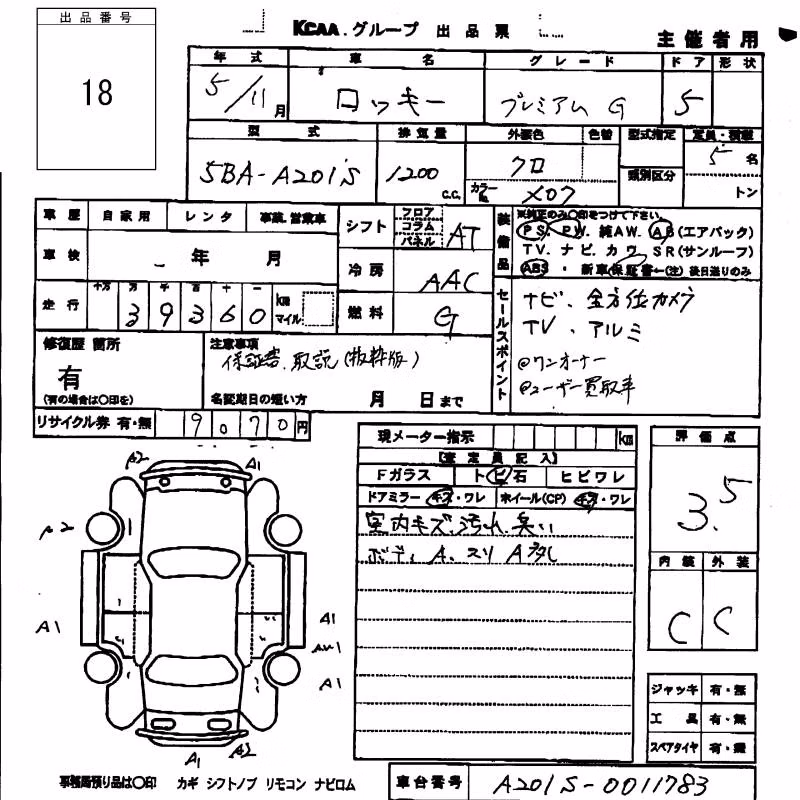 出品番号
18
KCAA.グループ 出品票
主催者用
年式 車名 グレード ドア 形状
5/11月 ロッキー プレミアム G 5
型式 排気量 外装色 色替 型式指定 定員・積載
5BA-A201S 1200 C.C. クロ 類別区分 5名
カラーNo. X07 トン
車歴 自家用 レンタ 事業.営業車
シフト フロア コラム パネル AT
装備品 ※純正のみ〇印をつけて下さい。
PS. PW. 純AW. AB(エアバック)
TV. ナビ. カワ SR(サンルーフ)
ABS ・ 新車保証書←(注) 後日送りのみ
車検 年 月
冷房 AAC
走行 十万 万 千 百 十 一
39360 km マイル
燃料 G
セールスポイント
ナビ、全方位カメラ
TV、アルミ
@ワンオーナー
@ユーザー買取車
修復歴 箇所
有
(有の場合は〇印を)
注意事項
保証書、取説(抜粋版)
名変期日の短い方 月 日まで
リサイクル券 有・無 9070円
現メーター指示 km
【査定員記入】
Fガラス トビ石 ヒビワレ
ドアミラー キズ・ワレ ホイール(CP) キズ・ワレ
室内キズ、汚れ、臭い
ボディA、スリA多し
評価点
3.5
内装 外装
C C
A2 A1
A2
A1
A1
A1
A1 A2
ジャッキ 有・無
工具 有・無
スペアタイヤ 有・無
事務局預り品は〇印 カギ シフトノブ リモコン ナビロム
車台番号 A201S-0011783